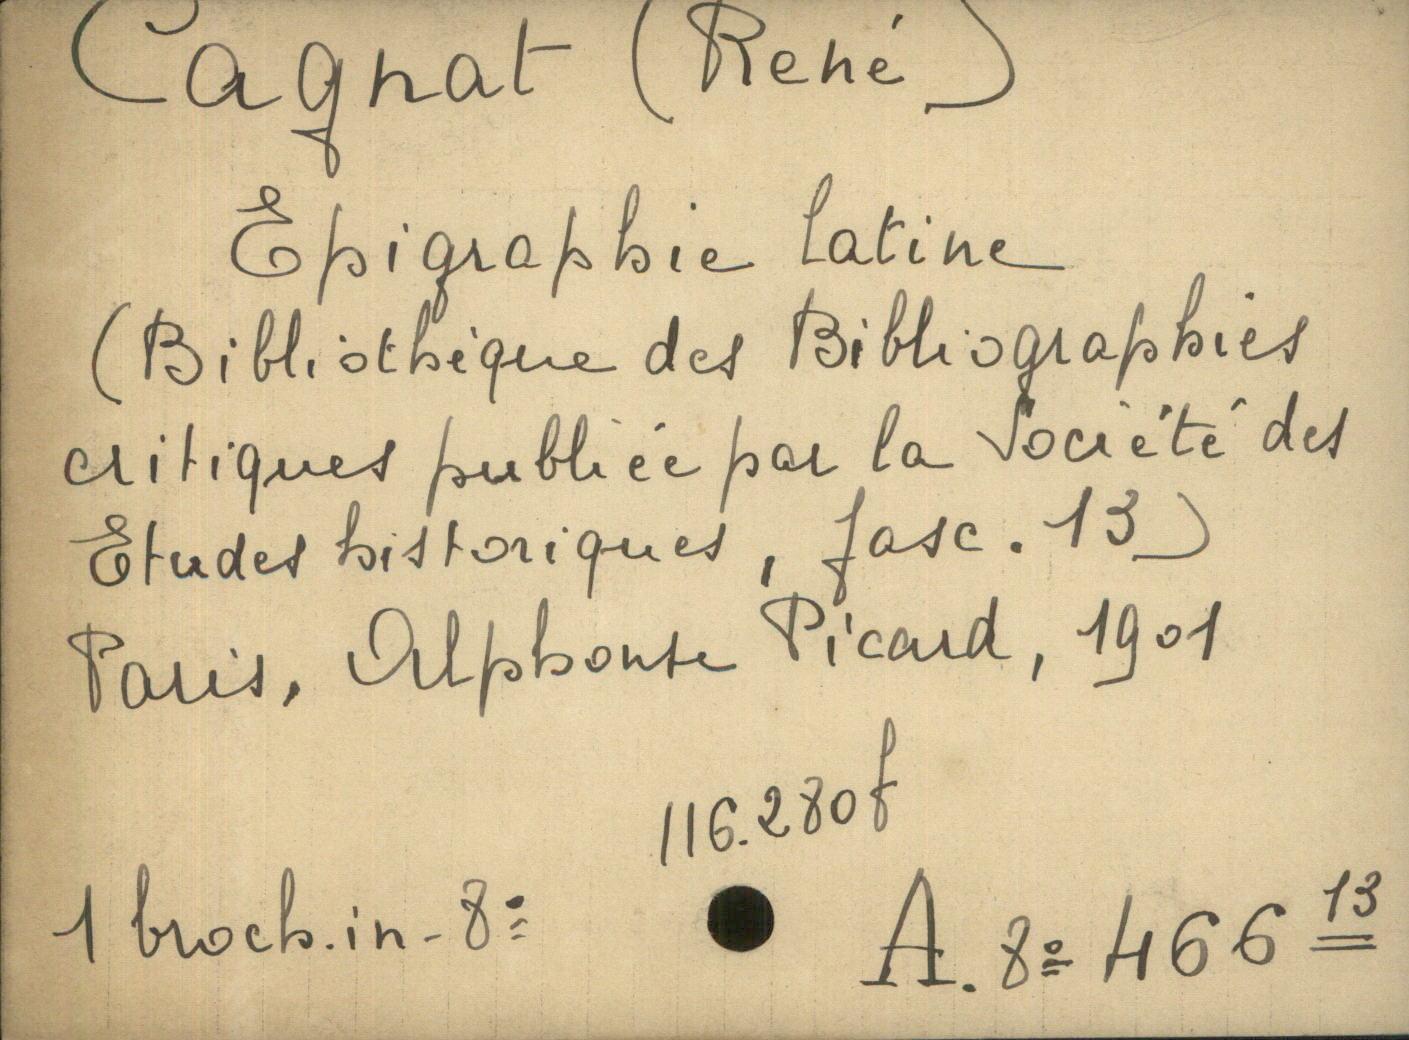 Cagnat (René)
Epigraphie latine
(Bibliothèque des Bibliographies
critiques publiée par la Société des
Etudes historiques, fasc. 13)
Paris, Alphonse Picard, 1901
116.280f
1 broch. in-8º
A. 8º 466 13